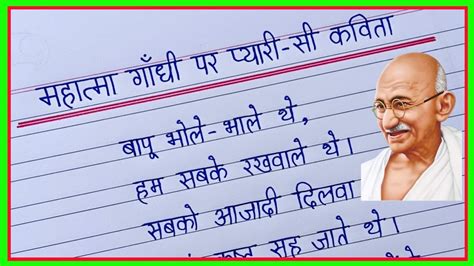 महात्मा गाँधी पर प्यारी-सी कविता
बापू भोले-भाले थे,
हम सबके रखवाले थे।
सबको आजादी दिलवा
सह जाते थे।